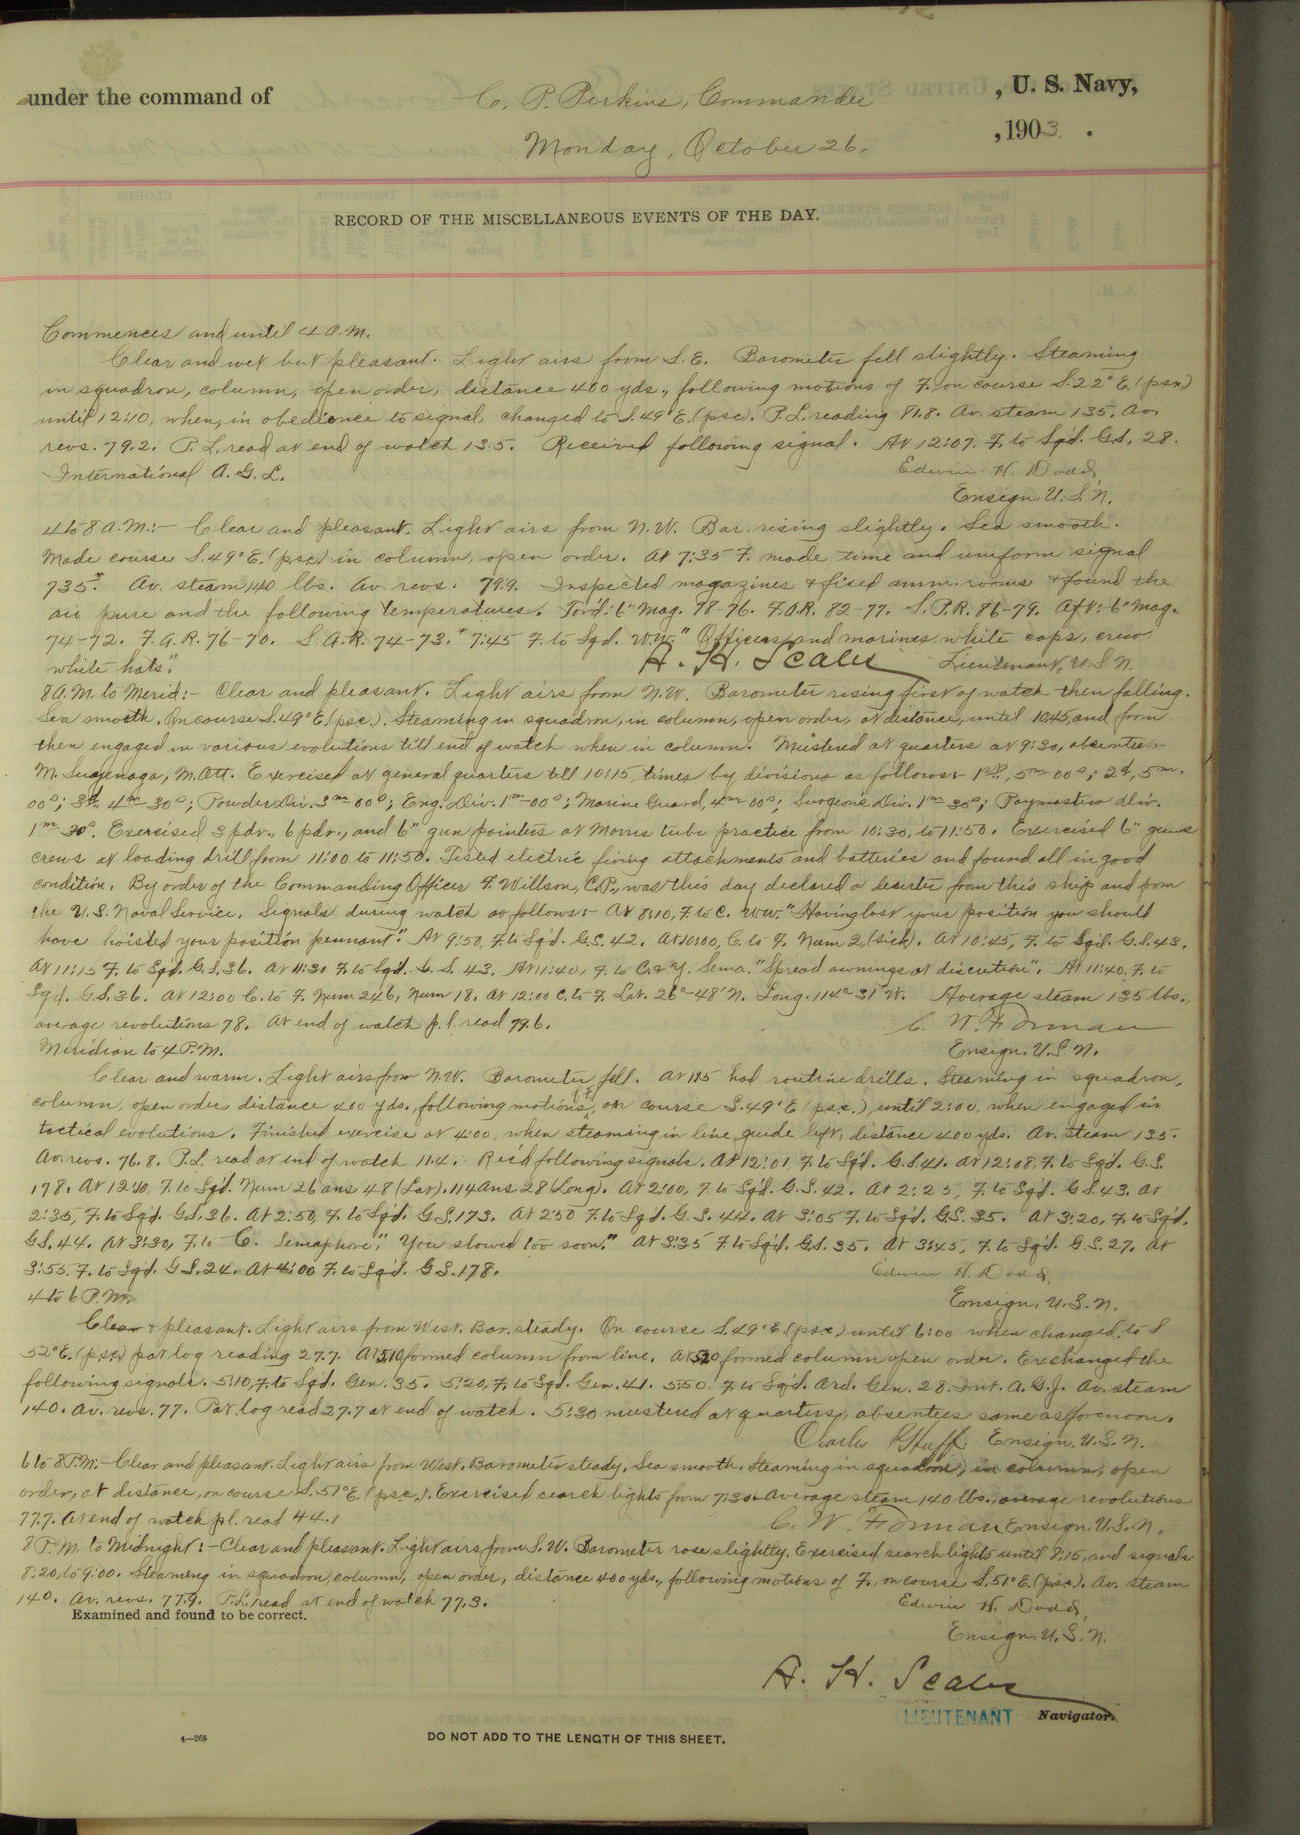 under the command of C. P. Perkins, Commander, U. S. Navy,
Monday, October 26, 1903.
RECORD OF THE MISCELLANEOUS EVENTS OF THE DAY.
Commences and until 4 A.M.
Clear and wet but pleasant. Light airs from S.E. Barometer fell slightly. Steaming
in squadron, column, open order, distance 400 yds., following motions of F. on course S.22°E. (psc)
until 12:10, when, in obedience to signal, changed to S.49°E. (psc). P.L. reading 81.8. Av. steam 135. Av.
revs. 79.2. P.L. read at end of watch 13.5. Received following signal. At 12:07. F. to Sqd. G.S. 28.
International A.G.L. Edwin H. Dodd,
Ensign, U.S.N.
4 to 8 A.M:- Clear and pleasant. Light airs from N.W. Bar. rising slightly. Sea smooth.
Made course S.49°E. (psc) in column, open order. At 7:35 F. made time and uniform signal
735. Av. steam 140 lbs. Av. revs. 79.9. Inspected magazines & fixed amm. rooms & found the
air pure and the following temperatures. For'd: 6" Mag. 78-76. F.A.R. 82-77. S.P.R. 86-79. Aft: 6" Mag.
74-72. F.A.R. 76-70. S.A.R. 74-73. 7:45 F. to Sqd. W.W. "Officers and marines white caps, crew
white hats". A. H. Scales Lieutenant, U.S.N.
8 A.M. to Merid:- Clear and pleasant. Light airs from N.W. Barometer rising first of watch then falling.
Sea smooth. On course S.49°E. (psc). Steaming in squadron, in column, open order, at distance, until 10:45, and from
then engaged in various evolutions till end of watch when in column. Mustered at quarters at 9:30, absentee
M. Suyenaga, M.Att. Exercised at general quarters till 10:15, times by divisions as follows:- 1st, 5m 00s; 2d, 5m.
00s; 3d. 4m-30s; Powder Div. 3m 00s; Eng. Div. 1m-00s; Marine Guard, 4m-00s; Surgeon's Div. 1m 30s; Paymaster's Div.
1m 30s. Exercised 3 pdr., 6 pdr., and 6" gun pointers at Morris tube practice from 10:30, to 11:50. Exercised 6" guns
crews at loading drill from 11:00 to 11:50. Tested electric firing attachments and batteries and found all in good
condition. By order of the Commanding Officer F. Willson, C.P., was this day declared a deserter from this ship and from
the U.S. Naval Service. Signals during watch as follows:- At 8:10, F. to C. W.W. "Having lost your position you should
have hoisted your position pennant". At 9:50, F. to Sq'd. G.S. 42. At 10:00, C. to F. Num 2, (sick). At 10:45, F. to Sq'd. G.S. 43.
At 11:15 F. to Sq'd. G.S. 36. At 11:30 F. to Sq'd. G.S. 43. At 11:40, F. to C. & Y. Sema. "Spread awnings at discretion". At 11:40. F. to
Sqd. G.S. 36. At 12:00 C. to F. Num 246, Num 18. At 12:00 C. to F. Lat. 26°-48' N. Long. 114° 31' W. Average steam 135 lbs.,
average revolutions 78. At end of watch p.l. read 99.6. C. W. Forman
Meridian to 4 P.M. Ensign, U.S.N.
Clear and warm. Light airs from N.W. Barometer fell. At 1:15 had routine drills. Steaming in squadron,
column, open order, distance 400 yds., following motions (F), on course S.49°E (psc.) until 2:00, when engaged in
tactical evolutions. Finished exercise at 4:00, when steaming in line, guide left, distance 400 yds. Av. steam 135.
Av. revs. 76.8. P.L. read at end of watch 11.4. Rec'd following signals. At 12:01, F. to Sq'd. G.S. 41. At 12:08, F. to Sq'd. G.S.
178. At 12:10, F. to Sq'd. Num 26 ans 48 (Lat). 114 Ans 28 (Long). At 2:00, F. to Sq'd. G.S. 42. At 2:25, F. to Sq'd. G.S. 43. At
2:35, F. to Sq'd. G.S. 36. At 2:50, F. to Sq'd. G.S. 173. At 2:50 F. to Sq'd. G.S. 44. At 3:05 F. to Sq'd. G.S. 35. At 3:20, F. to Sq'd.
G.S. 44. At 3:30, F. to C. Semaphore: "You slowed too soon." At 3:35 F. to Sq'd. G.S. 35. At 3:45, F. to Sq'd. G.S. 27. At
3:55. F. to Sq'd. G.S. 24. At 4:00 F. to Sq'd. G.S. 178. Edwin H. Dodd,
4 to 6 P.M. Ensign, U.S.N.
Clear & pleasant. Light airs from West. Bar. steady. On course S.49°E. (psc) until 6:00 when changed to S
52°E. (psc) pat log reading 27.7. At 5:10 formed column from line. At 5:20 formed column open order. Exchanged the
following signals. 5:10, F. to Sqd. Gen. 35. 5:20, F. to Sqd. Gen. 41. 5:50 F. to Sq'd. Ard. Gen. 28. Int. A.G.J. Av. steam
140. Av. revs. 77. Pat. log read 27.7 at end of watch. 5:30 mustered at quarters, absentees same as forenoon.
Ensign, U.S.N.
6 to 8 P.M:- Clear and pleasant. Light airs from West. Barometer steady. Sea smooth. Steaming in squadron, in column, open
order, at distance, on course S.51°E. (psc.). Exercised search lights from 7:30. Average steam 140 lbs., average revolutions
77.7. At end of watch p.l. read 44.1 C. W. Forman Ensign, U.S.N.
8 P.M. to Midnight:- Clear and pleasant. Light airs from S.W. Barometer rose slightly. Exercised search lights until 8:15, and signals
8:20, to 9:00. Steaming in squadron, column, open order, distance 400 yds., following motions of F., on course S.51°E. (psc). Av. steam
140. Av. revs. 77.9. P.L. read at end of watch 77.3. Edwin H. Dodd,
Examined and found to be correct.
Ensign, U.S.N.
A. H. Scales
LIEUTENANT Navigator.
4—265
DO NOT ADD TO THE LENGTH OF THIS SHEET.